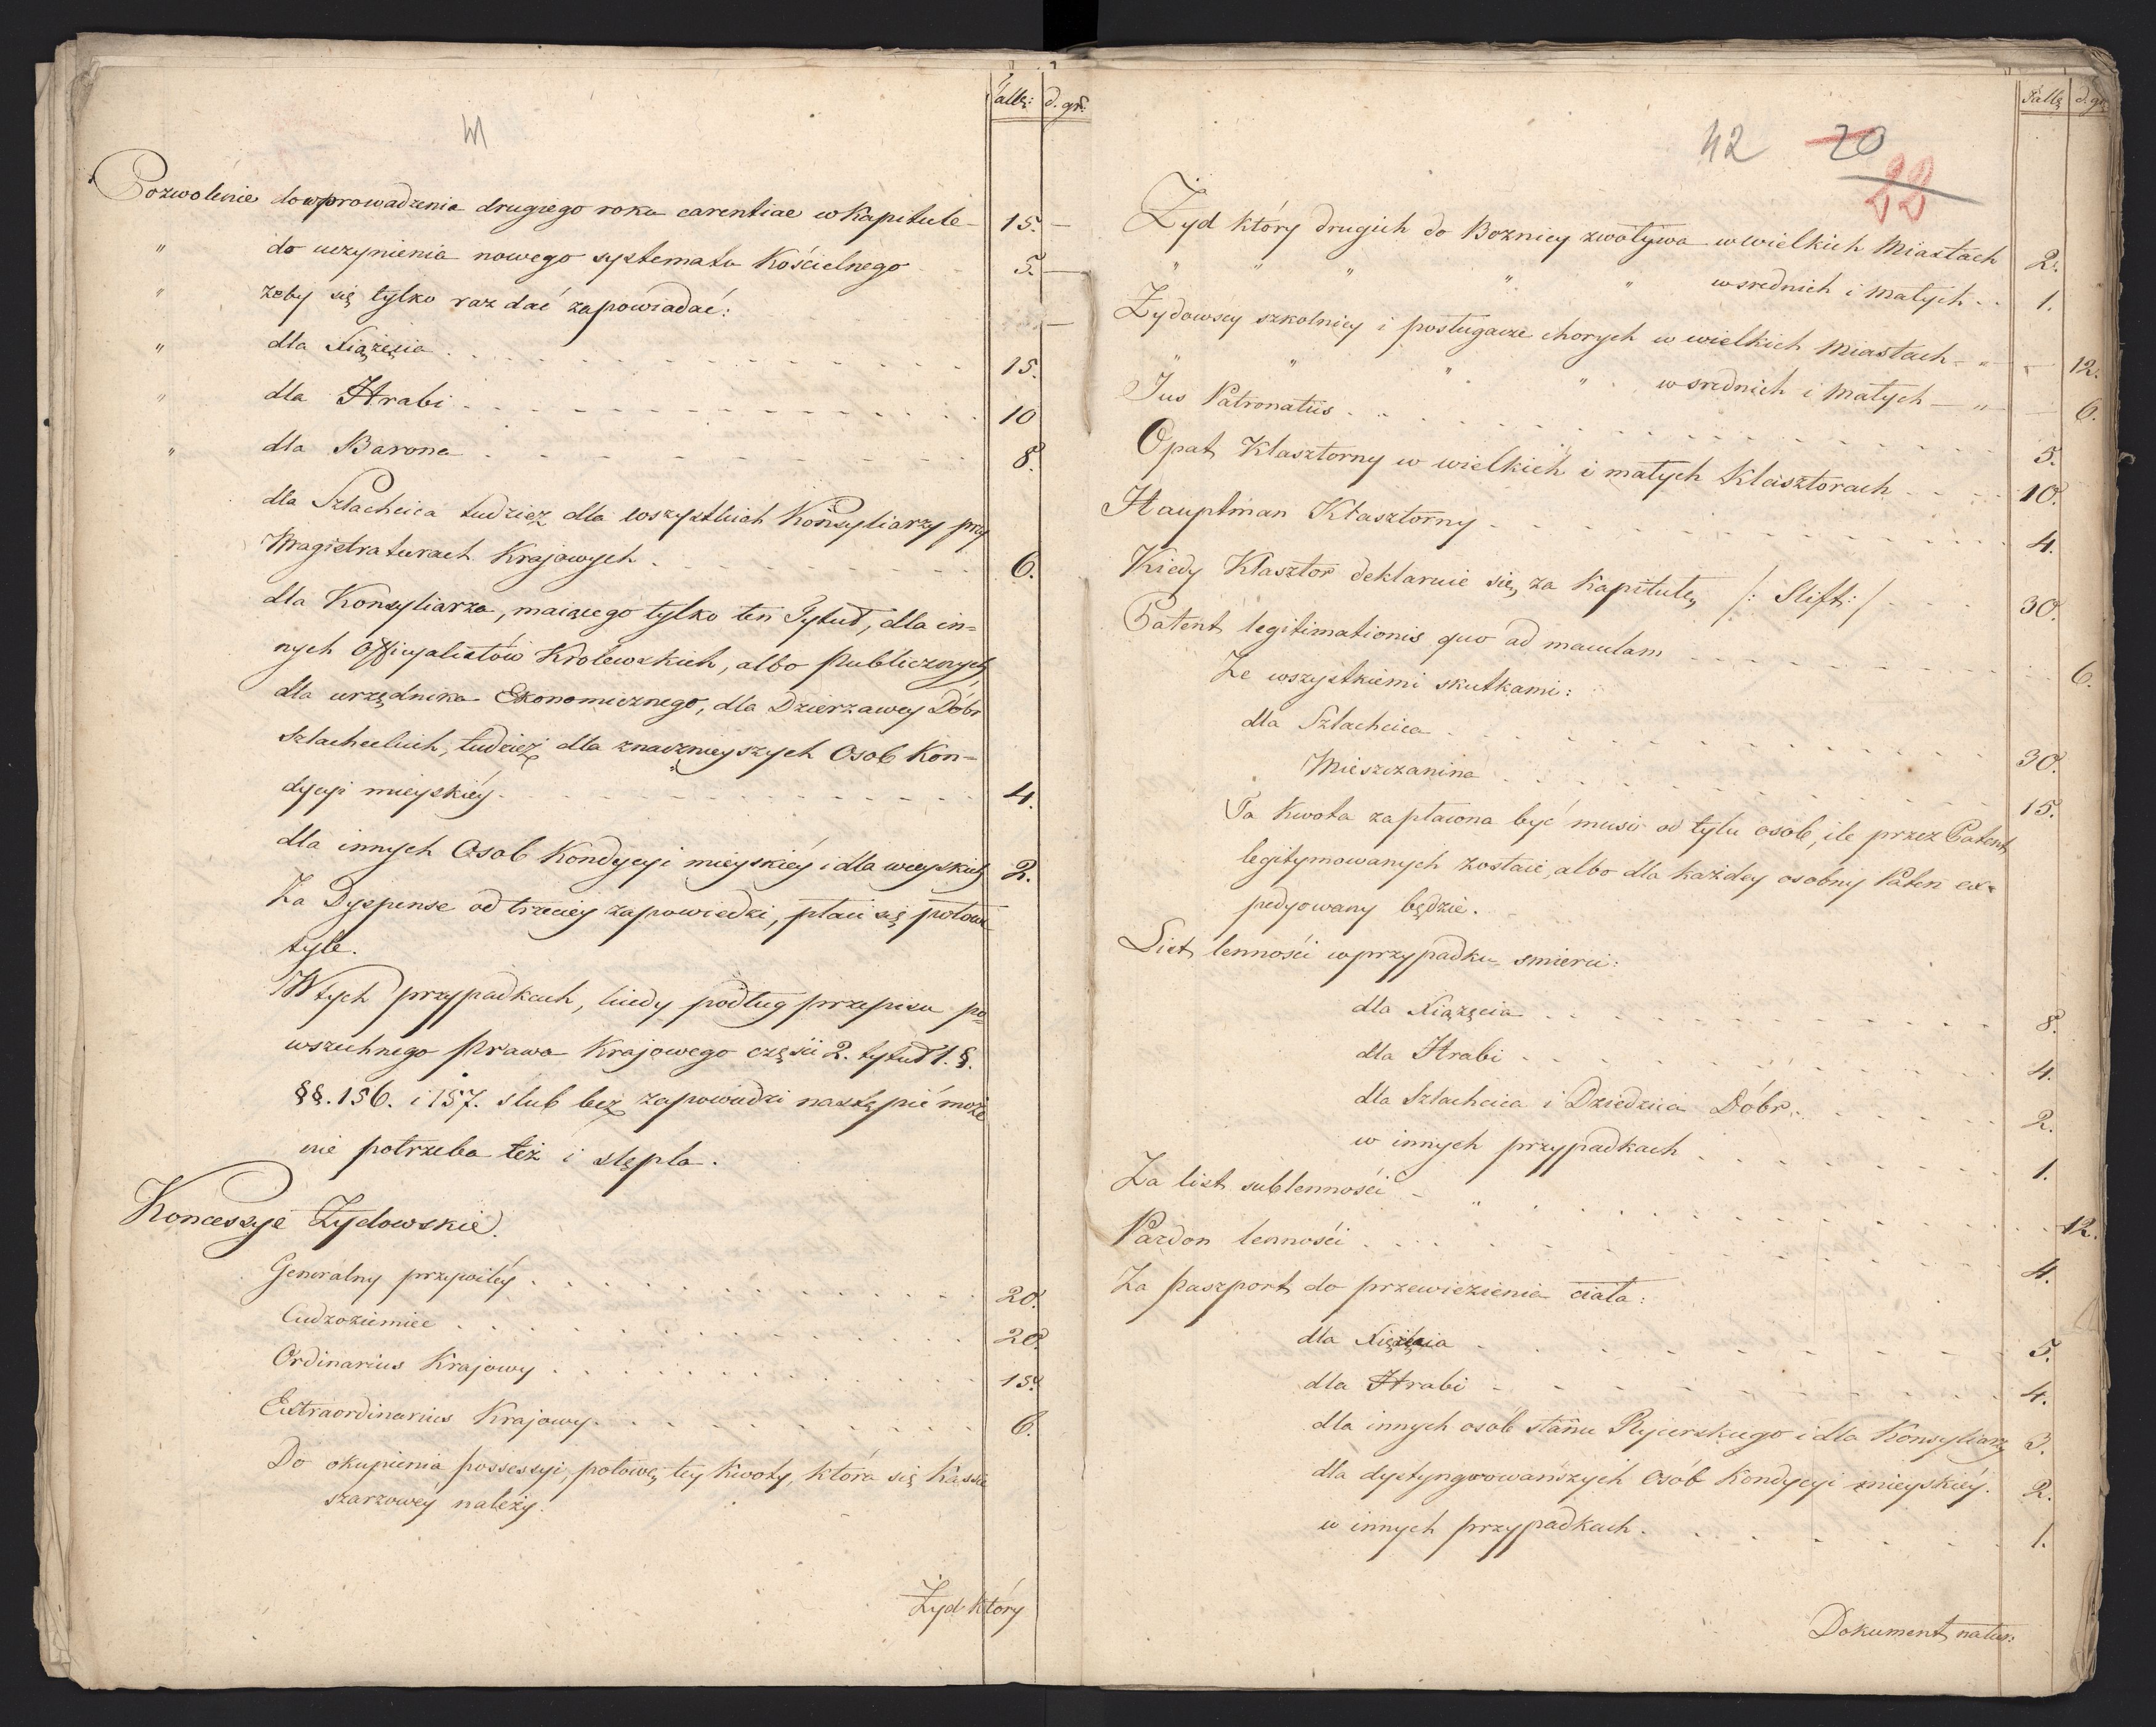 Tallr: d. gr:
41
Pozwolenie do wprowadzenia drugiego roku carentiae w Kapitule 15. —
" do uczynienia nowego systematu Kościelnego 5. —
" żeby się tylko raz dać zapowiadać:
" dla Xiążęcia 15.
" dla Hrabi 10
" dla Barona 8.
dla Szlachcica tudzież dla wszystkich Konsyliarzy przy
Magistraturach Krajowych 6.
dla Konsyliarza, maiącego tylko ten Tytuł, dla in=
nych Officyalistów Krolewskich, albo Publicznych,
dla urzędnika Ekonomicznego, dla Dzierzawcy Dóbr
Szlacheckich, tudzież dla znacznieyszych Osob Kon-
dycyi mieyskiéy 4.
dla innych Osob Kondycyi mieyskiéy i dla wieyskich 2.
Za Dyspense od trzeciey zapowiedzi, płaci się połowa
tyle.
W tych przypadkach, kiedy podług przepisu po=
wszechnego Prawa Krajowego części 2. tytuł 1. §.
§§. 156. i 157. slub bez zapowiedzi nastąpić może
nie potrzeba też i stępla.
Koncessye Żydowskie.
Generalny przywiléy 20.
Cudzoziemiec 20.
Ordinarius Krajowy 15.
Extraordinarius Krajowy 6.
Do okupienia possessyi, połowę tey Kwoty, która się Kassie
szarzowéy należy.
Żyd który
Tallr d. gr
42 20
22
Żyd który drugich do Boznicy zwoływa w wielkich Miastach 2.
" " " " " w srednich i małych 1.
Żydowscy szkolnicy i posługacze chorych w wielkich Miastach — " — 12.
" " " " w srednich i małych — " — 6.
Jus Patronatus 5.
Opat Klasztorny w wielkich i małych Klasztorach 10.
Hauptman Klasztorny 4.
Kiedy Klasztor deklaruie się za Kapitułę /: Stift :/ 30.
Patent legitimationis quo ad maculam 6.
Ze wszystkiemi skutkami:
dla Szlachcica 30.
Mieszczanina 15.
Ta Kwota zapłacona być musi od tylu osob, ile przez Patent
legitymowanych zostaie, albo dla każdey osobny Paten ex=
pedyowany będzie.
List lenności w przypadku smierci:
dla Xiążęcia 8.
dla Hrabi 4.
dla Szlachcica i Dziedzica Dóbr 2.
w innych przypadkach 1.
Za list sublenności " 12.
Pardon lenności 4.
Za paszport do przewiezienia ciała:
dla Xiążęcia 5.
dla Hrabi 4.
dla innych osób stanu Rycerskiego i dla Konsyliarzy 3.
dla dystyngwowańszych Osób Kondycyi mieyskiéy. 2.
w innych przypadkach. 1.
Dokument natur: